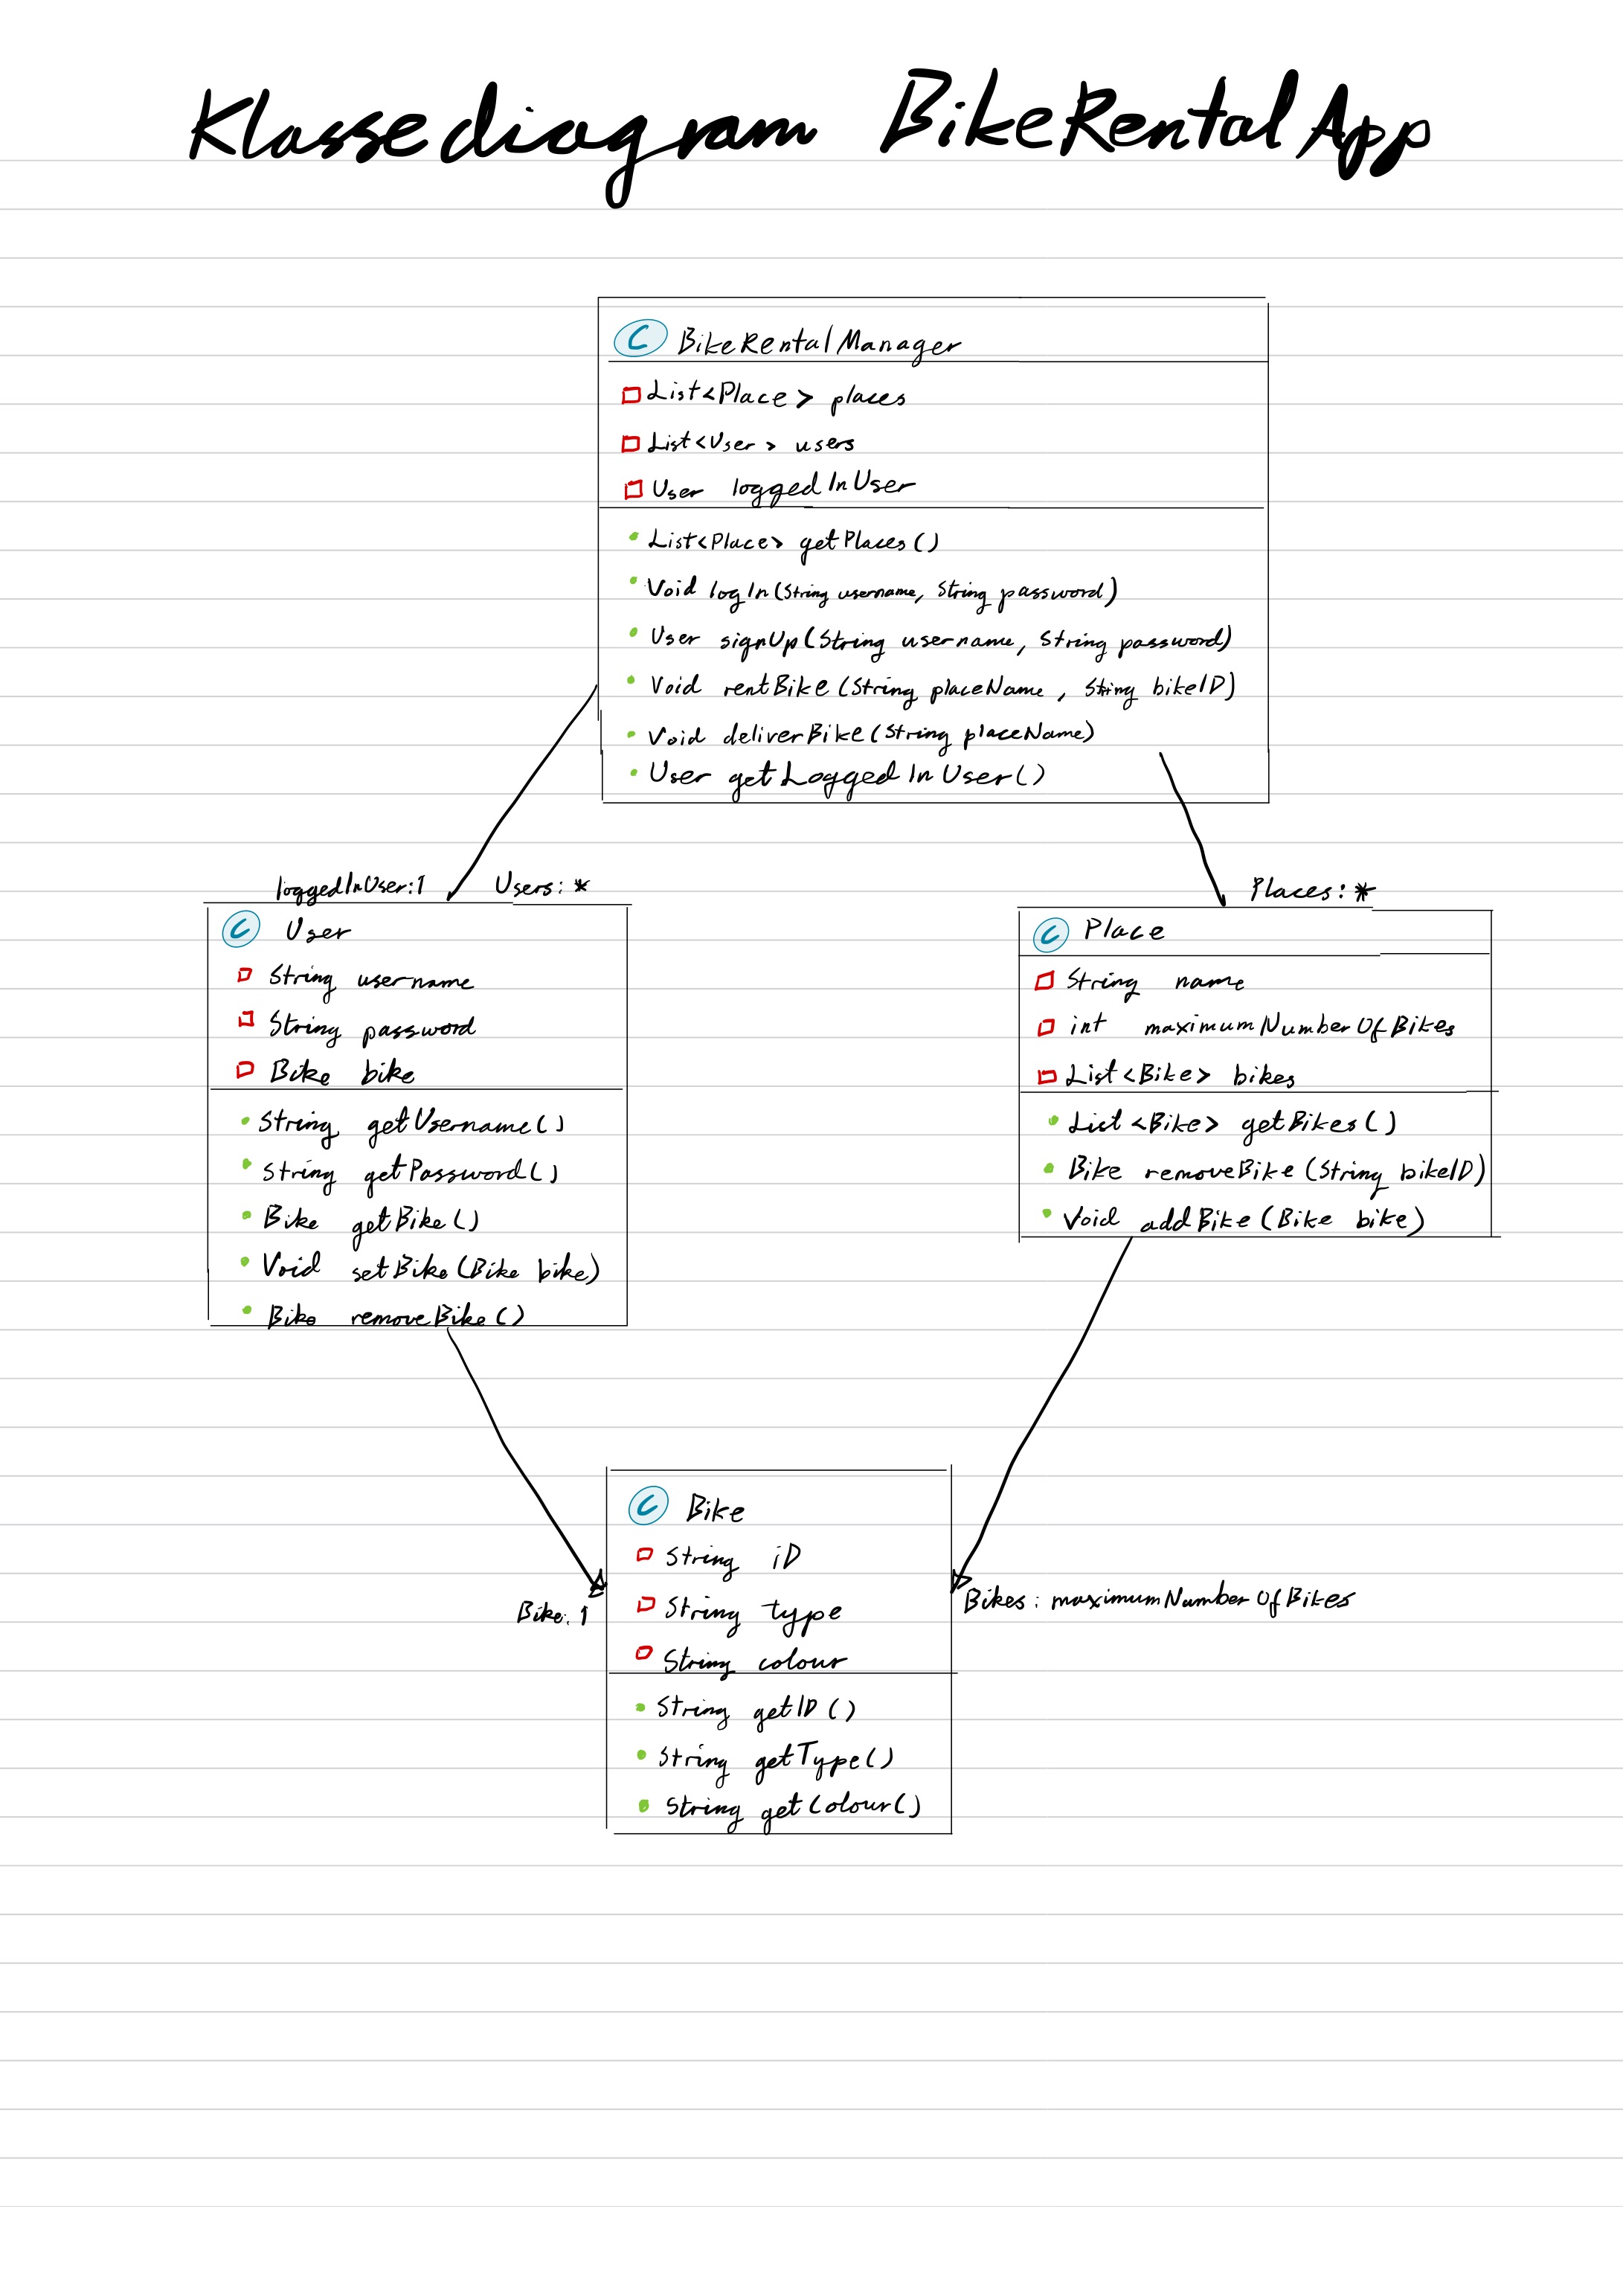 Klassediagram BikeRentalApp
C BikeRentalManager
List<Place> places
List<User> users
User loggedInUser
List<Place> getPlaces()
Void logIn(String username, String password)
User signUp(String username, String password)
Void rentBike(String placeName, String bikeID)
Void deliverBike(String placeName)
User getLoggedInUser()
loggedInUser:1 Users: *
C User
String username
String password
Bike bike
String getUsername()
String getPassword()
Bike getBike()
Void setBike(Bike bike)
Bike removeBike()
Places: *
C Place
String name
int maximumNumberOfBikes
List<Bike> bikes
List<Bike> getBikes()
Bike removeBike(String bikeID)
Void addBike(Bike bike)
Bike: 1
Bikes: maximumNumberOfBikes
C Bike
String iD
String type
String colour
String getID()
String getType()
String getColour()